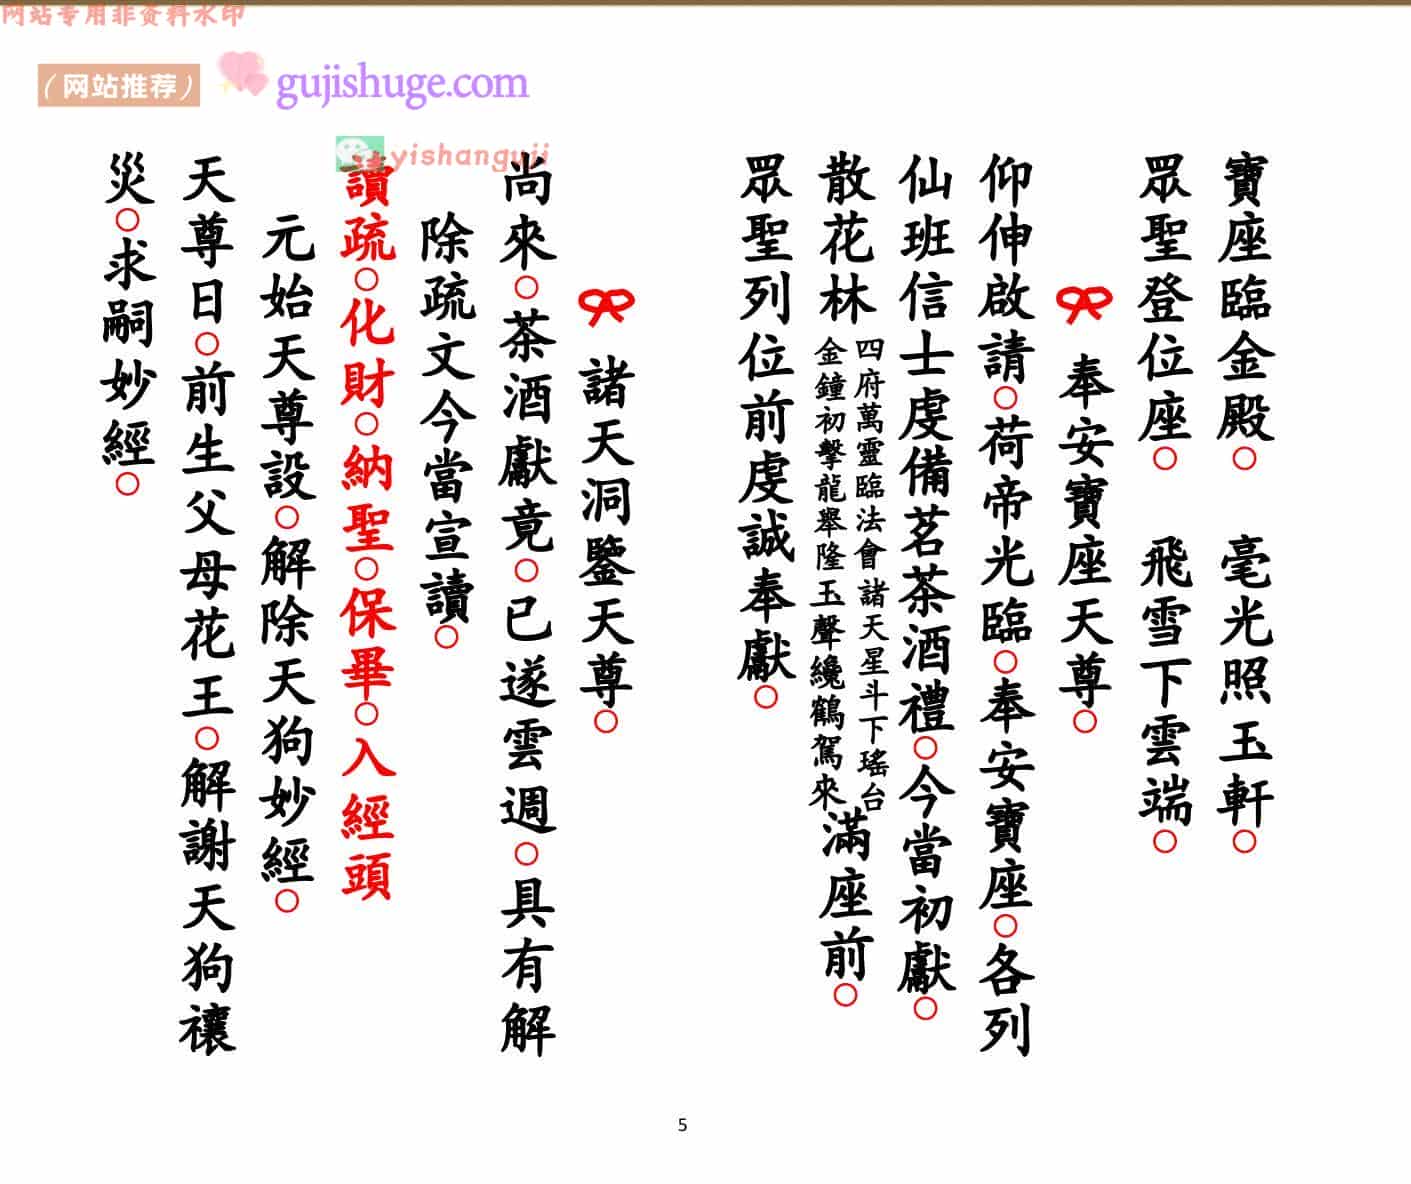 网站专用非资料水印
（网站推荐）
gujishuge.com
yishanguji
寶座臨金殿○　毫光照玉軒○
眾聖登位座○　飛雪下雲端○
奉安寶座天尊○
仰伸啟請○荷帝光臨○奉安寶座○各列
仙班信士虔備茗茶酒禮○今當初獻○
散花林
四府萬靈臨法會諸天星斗下瑤台
金鐘初擊龍舉隆玉聲纔鶴駕來
滿座前○
眾聖列位前虔誠奉獻○
諸天洞鑒天尊○
尚來○茶酒獻竟○已遂雲週○具有解
除疏文今當宣讀○
讀疏○化財○納聖○保畢○入經頭
元始天尊設○解除天狗妙經○
天尊日○前生父母花王○解謝天狗禳
災○求嗣妙經○
5